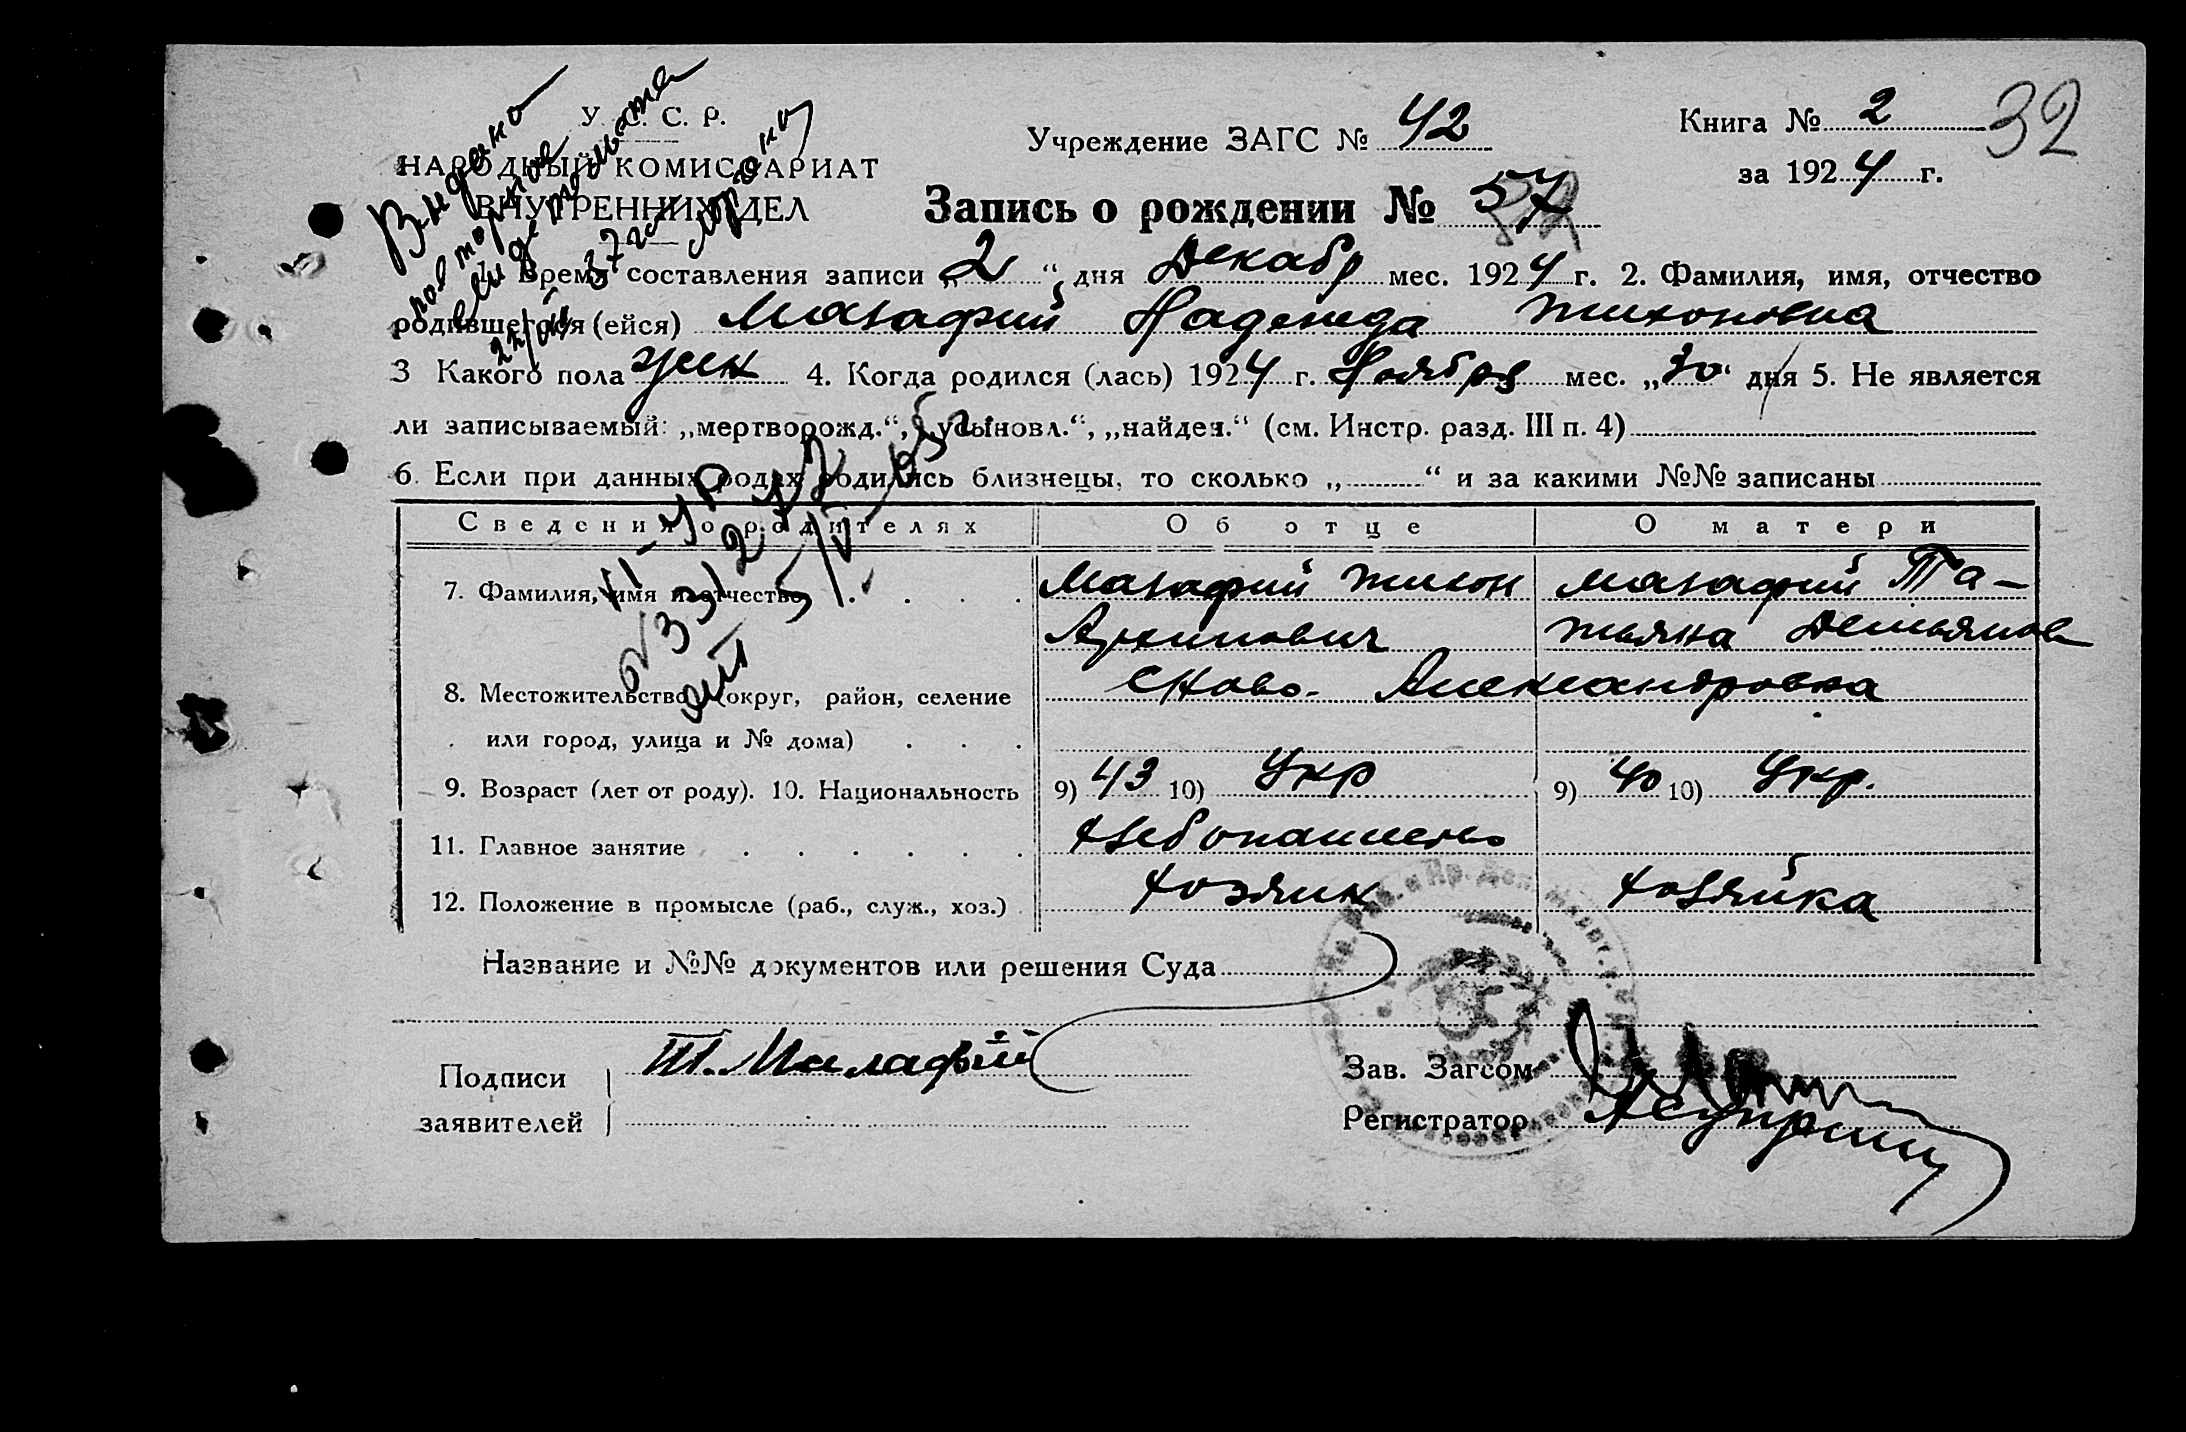 У. С. С. Р.
НАРОДНЫЙ КОМИССАРИАТ
ВНУТРЕННИХ ДЕЛ
Выдано
повторное
свидетельство
Учреждение ЗАГС № 42
Книга № 2
за 1924 г.
32
Запись о рождении № 57
1. Время составления записи „2“ дня Декабр мес. 1924 г. 2. Фамилия, имя, отчество
родившегося (ейся) Малафий Надежда Тихоновна
3 Какого пола жен 4. Когда родился (лась) 1924 г. Ноября мес. „30“ дня 5. Не является
ли записываемый: „мертворожд.“, „усыновл.“, „найден.“ (см. Инстр. разд. III п. 4)
6. Если при данных родах родились близнецы, то сколько „ “ и за какими №№ записаны
VI-УР
№ 331242
Сведения о родителях Об отце О матери
7. Фамилия, имя и отчество Малафий Тихон Малафий Та-
Архипович тьяна Демьянов
8. Местожительство (округ, район, селение Ново-Александровка
или город, улица и № дома)
9. Возраст (лет от роду). 10. Национальность 9) 43 10) Укр 9) 40 10) Укр.
11. Главное занятие Хлебопашень
12. Положение в промысле (раб., служ., хоз.) Хозяин Хозяйка
Название и №№ документов или решения Суда
Подписи Т. Малафій
заявителей
Зав. Загсом
Регистратор